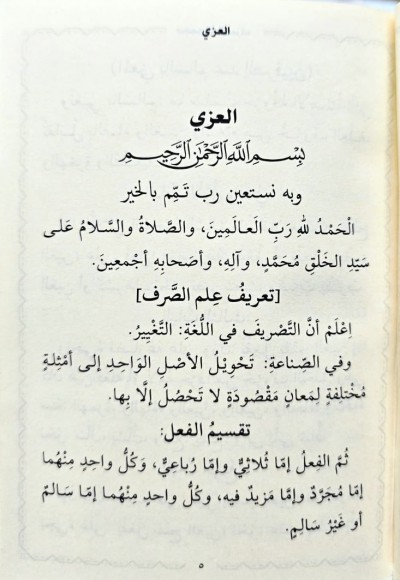 العزي
العزي
بِسْمِ اللَّهِ الرَّحْمَٰنِ الرَّحِيمِ
وبه نستعين رب تَمِّم بالخير
الْحَمْدُ للهِ رَبِّ العَالَمِينَ، والصَّلاةُ والسَّلامُ عَلى
سَيِّدِ الخَلْقِ مُحَمَّدٍ، وآلِهِ، وأصَحابِهِ أجْمَعِينَ.
[تعريفُ عِلم الصَّرف]
اِعْلَمْ أنَّ التَّصْرِيفَ في اللُّغَةِ: التَّغْيِيرُ.
وفي الصِّناعةِ: تَحْوِيْلُ الأصْلِ الوَاحِدِ إلى أمْثِلةٍ
مُخْتلِفةٍ لِمَعانٍ مَقْصُودَةٍ لا تَحْصُلُ إلَّا بِها.
تقسيمُ الفعل:
ثُمَّ الفِعلُ إمّا ثُلاثِيٌّ وإمّا رُباعِيٌّ، وَكُلُّ واحدٍ مِنْهُما
إمّا مُجَرَّدٌ وإمّا مَزيدٌ فيه، وكُلُّ واحدٍ مِنْهُما إمّا سَالمٌ
أو غَيْرُ سَالِمٍ.
٥